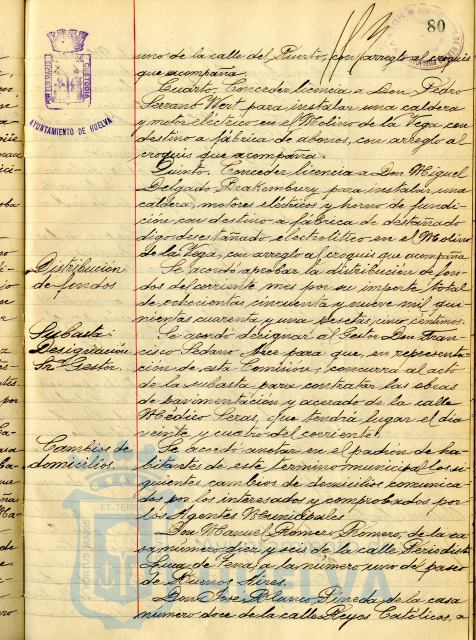 80
AYUNTAMIENTO DE HUELVA
uno de la calle del Puerto, con arreglo al croquis
que acompaña
Cuarto. Conceder licencia a Don Pedro
Serrano Wert para instalar una caldera
y motor eléctrico en el Molino de la Vega con
destino a fábrica de abonos, con arreglo al
croquis que acompaña.
Quinto. Conceder licencia a Don Miguel
Delgado Brakembury para instalar una
caldera, motores eléctricos y horno de fundi-
ción con destino a fábrica de destañado
digo desestañado electrolítico en el Molino
de la Vega, con arreglo al croquis que acompaña
Distribución
de fondos
Se acordó aprobar la distribución de fon-
dos del corriente mes por su importe total
de ochocientas cincuenta y nueve mil qui-
nientas cuarenta y una pesetas, cinco céntimos.
Subasta:
Designación
Sr. Gestor.
Se acordó designar al Gestor Don Fran-
cisco Sedano para que, en representa-
ción de esta Comision, concurra al acto
de la subasta para contratar las obras
de pavimentación y acerado de la calle
Médico Seras, que tendrá lugar el dia
veinte y cuatro del corriente.
Cambios de
domicilios.
Se acordó anotar en el padrón de ha-
bitantes de este término municipal los si-
guientes cambios de domicilios comunica-
dos por los interesados y comprobados por
los Agentes Municipales
José Manuel Romero Romero, de la ca-
sa número diez y seis de la calle Periodista
Luca de Tena, a la número uno del paseo
de Buenos Aires.
Don José Blanco Pineda, de la casa
número doce de la calle Reyes Católicos, a